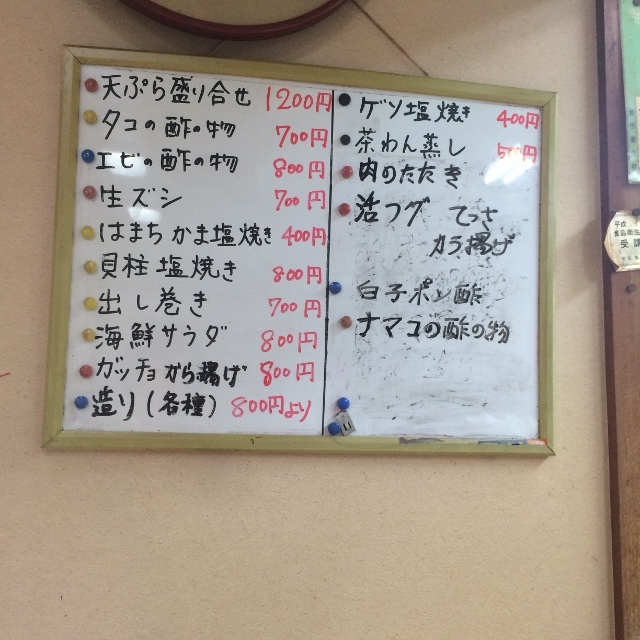 天ぷら盛り合せ 1200円
タコの酢の物 700円
エビの酢の物 800円
生ズシ 700円
はまちかま塩焼き 400円
貝柱塩焼き 800円
出し巻き 700円
海鮮サラダ 800円
ガッチョから揚げ 800円
造り(各種) 800円より
ゲソ塩焼き 400円
茶わん蒸し 500円
肉のたたき
活フグ てっさ
カラ揚げ
白子ポン酢
ナマコの酢の物
平成
食品衛生
受講